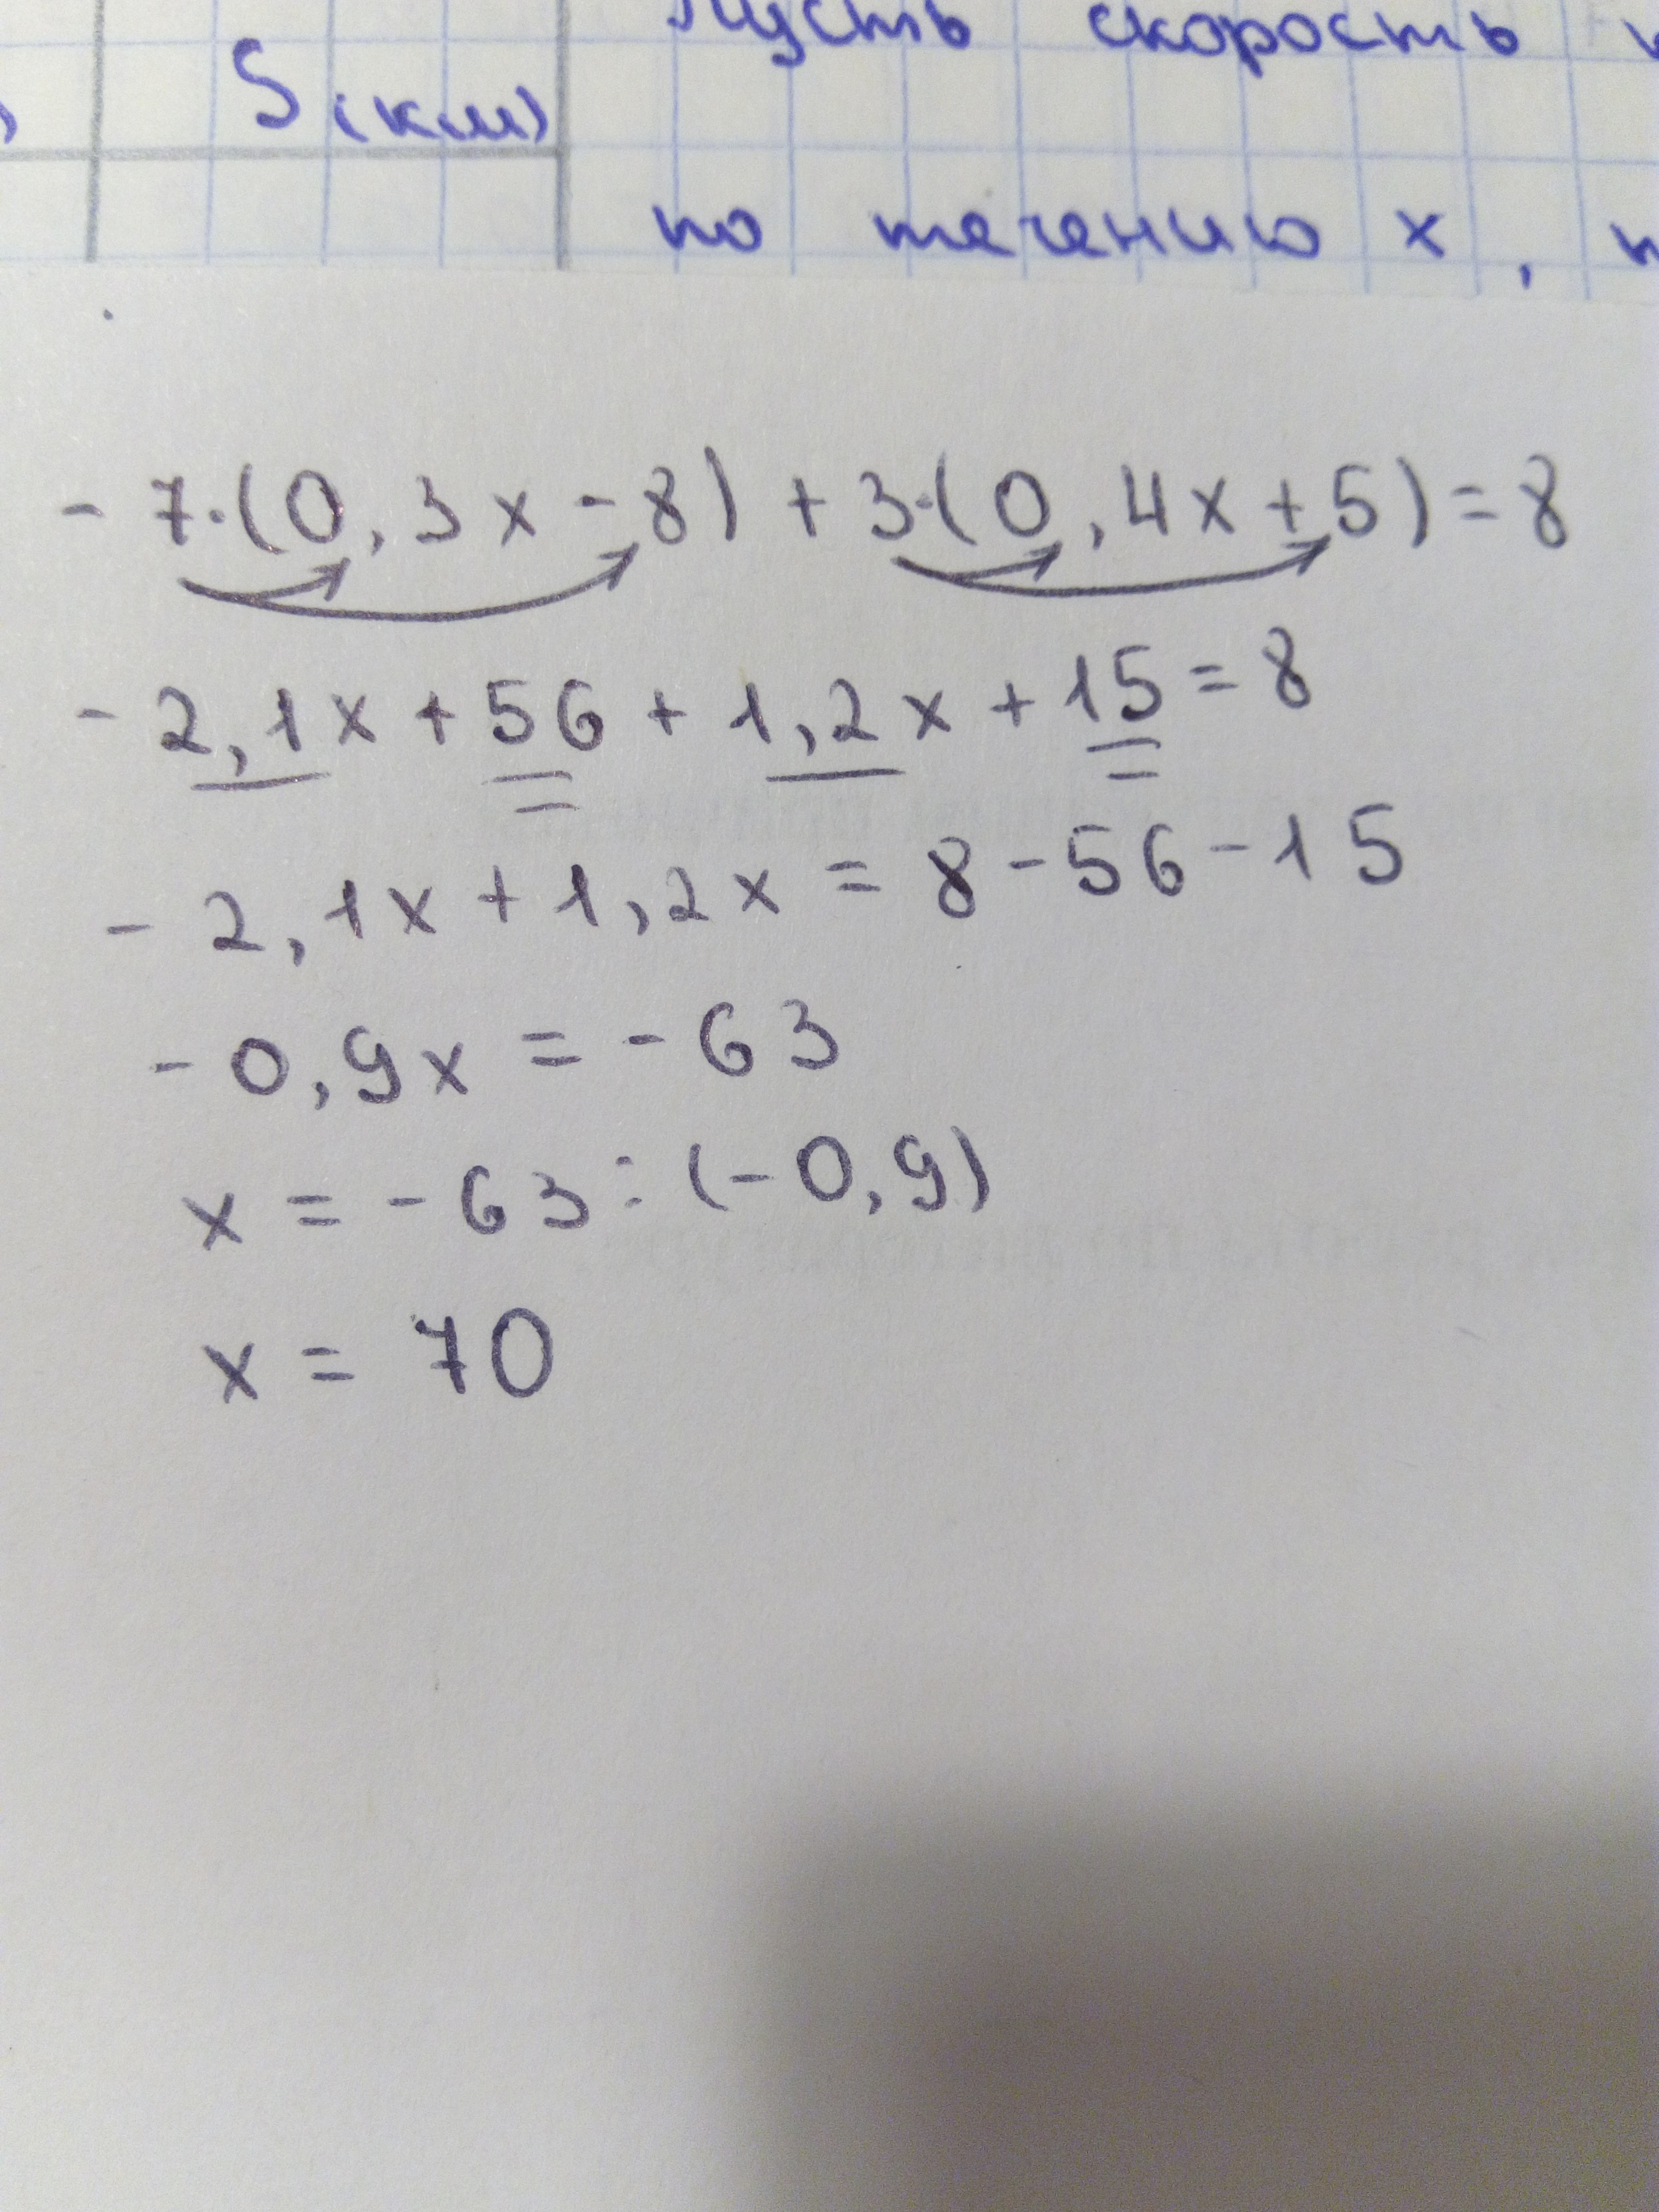 S(км)
Пусть скорость
по течению х,
- 7·(0,3x-8)+3·(0,4x+5)=8
- 2,1x+56+1,2x+15=8
- 2,1x+1,2x=8-56-15
- 0,9x=-63
x=-63:(-0,9)
x=70